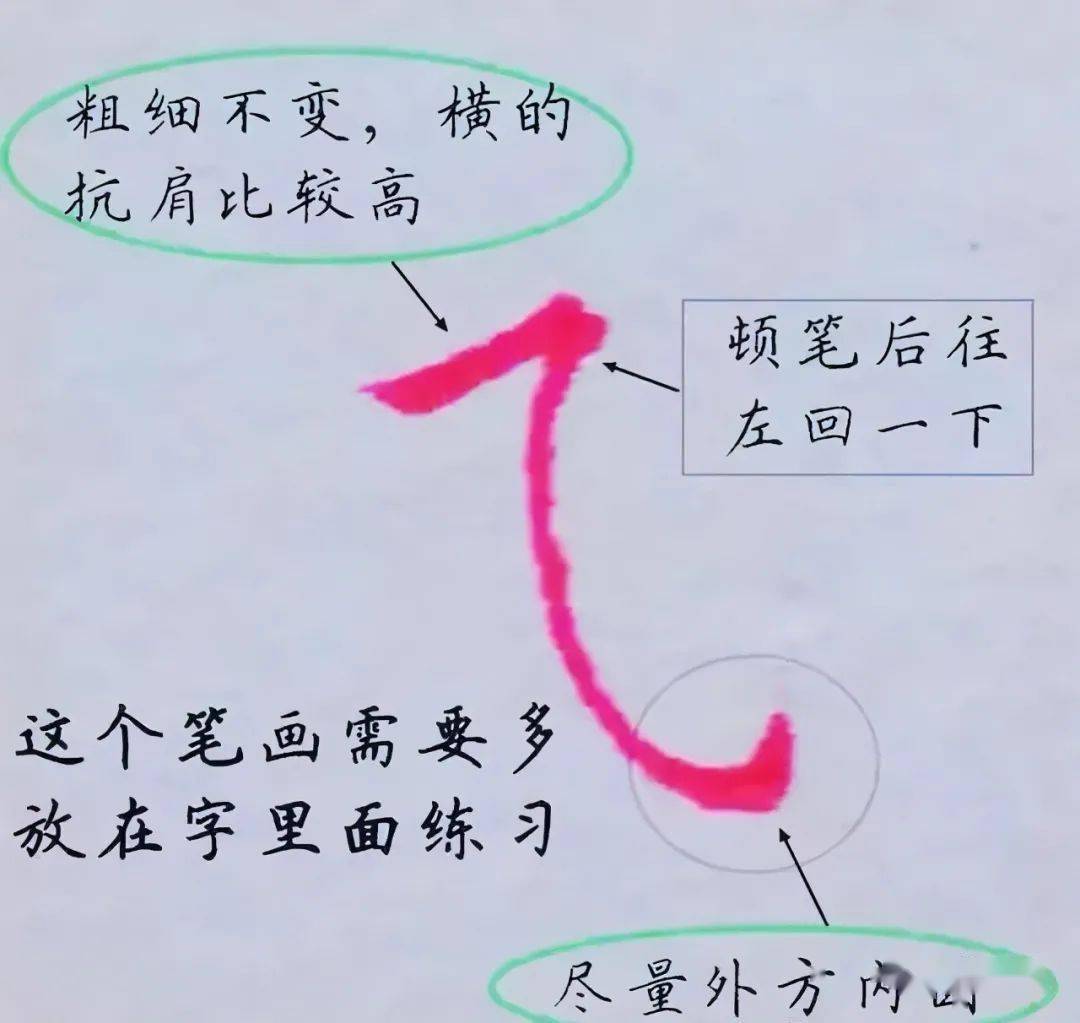 粗细不变，横的
抗肩比较高
顿笔后往
左回一下
这个笔画需要多
放在字里面练习
尽量外方内